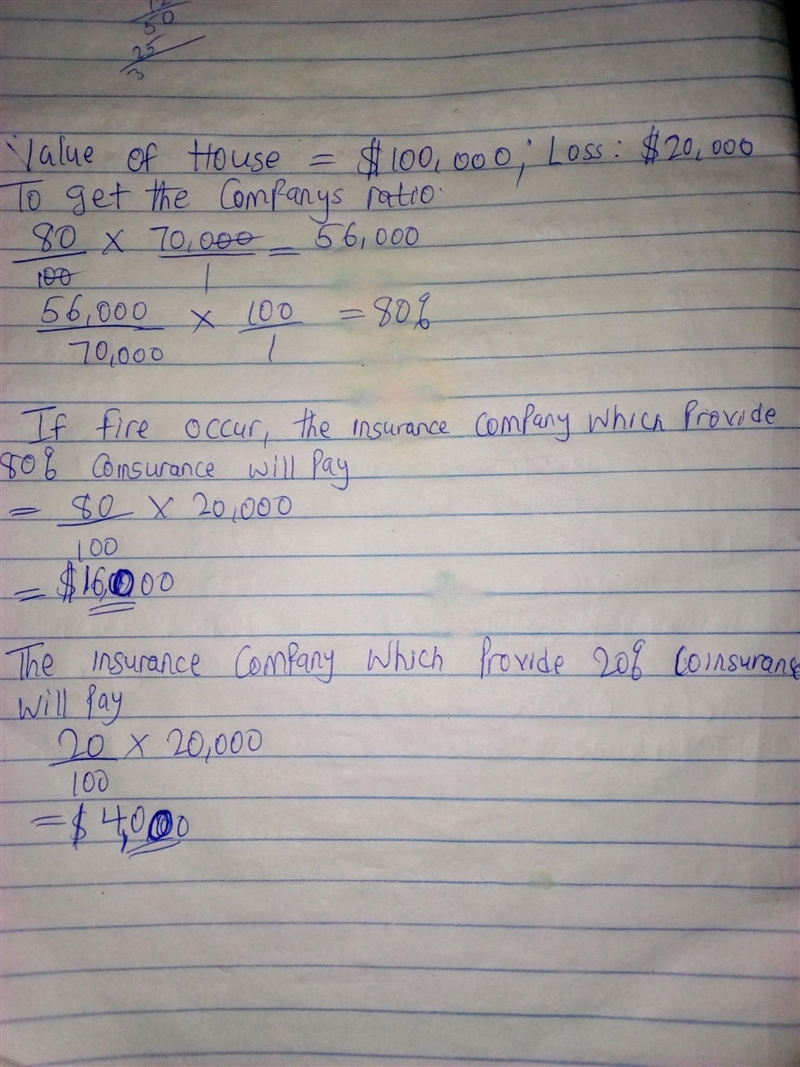 50
25
3
Value of House = $100,000; Loss: $20,000
To get the Companys ratio.
80/100 × 70,000/1 = 56,000
56,000/70,000 × 100/1 = 80%
If fire occur, the insurance Company which Provide
80% Coinsurance will Pay
= 80/100 × 20,000
= $16,000
The insurance Company Which Provide 20% Coinsurance
Will Pay
20/100 × 20,000
= $4,000